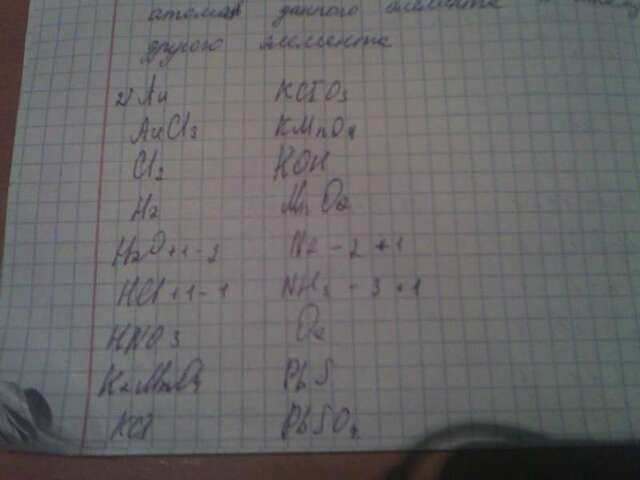 атомов данного элемента к атому
другого элемента
2) Au KClO3
AuCl3 KMnO4
Cl2 KOH
H2 MnO2
H2O +1 -2 N2 - 2 +1
HCl +1 -1 NH3 - 3 +1
HNO3 O2
K2MnO4 PbS
KCl PbSO4